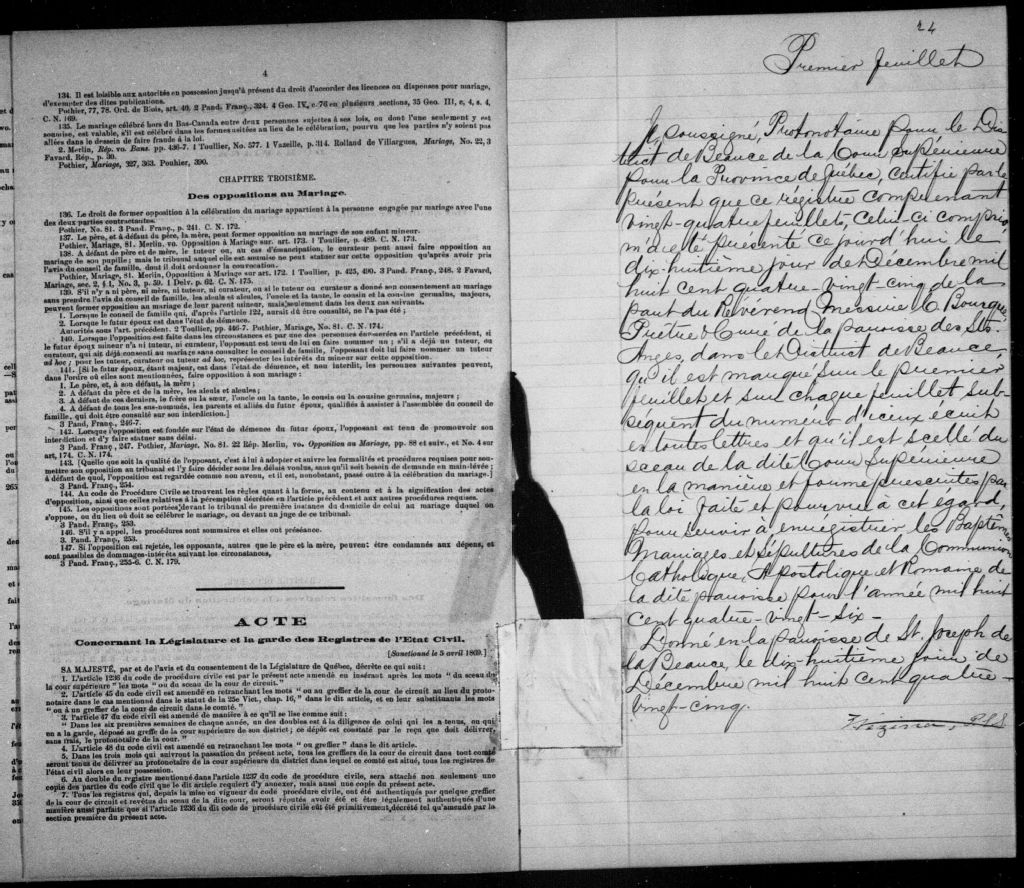 4
134. Il est loisible aux autorités en possession jusqu'à présent du droit d'accorder des licences ou dispenses pour mariage,
d'exempter des dites publications.
Pothier, 77, 78. Ord. de Blois, art. 40, 2 Pand. Franç., 324. 4 Geo. IV, c-76 en plusieurs sections, 35 Geo. III, c, 4, s. 4,
C. N. 169.
135. Le mariage célébré hors du Bas-Canada entre deux personnes sujettes à ses lois, ou dont l'une seulement y est
soumise, est valable, s'il est célébré dans les formes usitées au lieu de la célébration, pourvu que les parties n'y soient pas
allées dans le dessein de faire fraude à la loi.
2. Merlin, Rép. vo. Bans. pp. 436-7. 1 Toullier, No. 577. 1 Vazeille, p. 314. Rolland de Villargues, Mariage, No. 22, 3
Favard, Rép., p. 30.
Pothier, Mariage, 327, 363. Pouhier, 390.
CHAPITRE TROISIÈME.
Des oppositions au Mariage.
136. Le droit de former opposition à la célébration du mariage appartient à la personne engagée par mariage avec l'une
des deux parties contractantes.
Pothier, No. 81. 3 Pand. Franç., p. 241. C. N. 172.
137. Le père, et à défaut du père, la mère, peut former opposition au mariage de son enfant mineur.
Pothier, Mariage, 81. Merlin, vo. Opposition à Mariage sur. art. 173. 1 Toullier, p. 489. C. N. 173.
138. A défaut de père et de mère, le tuteur ou, au cas d'émancipation, le curateur peut aussi faire opposition au
mariage de son pupille; mais le tribunal auquel elle est soumise ne peut statuer sur cette opposition qu'après avoir pris
l'avis du conseil de famille, dont il doit ordonner la convocation.
Pothier, Mariage, 81. Merlin, Opposition à Mariage sur art. 172. 1 Toullier, p. 425, 490. 3 Pand. Franç., 248. 2 Favard,
Mariage, sec. 2, § 1, No. 3, p. 59. 1 Delv. p. 62. C. N. 175.
139. S'il n'y a ni père, ni mère, ni tuteur, ni curateur, ou si le tuteur ou curateur a donné son consentement au mariage
sans prendre l'avis du conseil de famille, les aïeuls et aïeules, l'oncle et la tante, le cousin et la cousine germains, majeurs,
peuvent former opposition au mariage de leur parent mineur, mais seulement dans les deux cas suivants.
1. Lorsque le conseil de famille qui, d'après l'article 122, aurait dû être consulté, ne l'a pas été;
2. Lorsque le futur époux est dans l'état de démence.
Autorités sous l'art. précédent. 2 Toullier, pp. 446-7. Pothier, Mariage, No. 81. C. N. 174.
140. Lorsque l'opposition est faite dans les circonstances et par une des personnes énoncées en l'article précédent, si
le futur époux mineur n'a ni tuteur, ni curateur, l'opposant est tenu de lui en faire nommer un; s'il a déjà un tuteur, ou
curateur, qui ait déjà consenti au mariage sans consulter le conseil de famille, l'opposant doit lui faire nommer un tuteur
ad hoc; pour les tuteur, curateur ou tuteur ad hoc, représenter les intérêts du mineur sur cette opposition.
141. [Si le futur époux, étant majeur, est dans l'état de démence, et non interdit, les personnes suivantes peuvent,
dans l'ordre où elles sont mentionnées, faire opposition à son mariage:
1. Le père, et, à son défaut, la mère;
2. A défaut du père et de la mère, les aïeuls et aïeules;
3. A défaut de ces derniers, le frère ou la sœur, l'oncle ou la tante, le cousin ou la cousine germains, majeurs;
4. A défaut de tous les sus-nommés, les parents et alliés du futur époux, qualifiés à assister à l'assemblée du conseil de
famille, qui doit être consulté sur son interdiction.]
3 Pand. Franç., 246-7.
142. Lorsque l'opposition est fondée sur l'état de démence du futur époux, l'opposant est tenu de promouvoir son
interdiction et d'y faire statuer sans délai.
3 Pand. Franç., 247. Pothier, Mariage, No. 81. 22 Rép. Merlin, vo. Opposition au Mariage, pp. 88 et suiv., et No. 4 sur
art. 174. C. N. 174.
143. [Quelle que soit la qualité de l'opposant, c'est à lui à adopter et suivre les formalités et procédures requises pour sou-
mettre son opposition au tribunal et l'y faire décider sous les délais voulus, sans qu'il soit besoin de demande en main-levée;
à défaut de quoi, l'opposition est regardée comme non avenue, et il est, nonobstant, passé outre à la célébration du mariage.]
3 Pand. Franç., 254.
144. Au code de Procédure Civile se trouvent les règles quant à la forme, au contenu et à la signification des actes
d'opposition, ainsi que celles relatives à la péremption décrétée en l'article précédent et aux autres procédures requises.
145. Les oppositions sont portées devant le tribunal de première instance du domicile de celui au mariage duquel on
s'oppose, ou du lieu où doit se célébrer le mariage, ou devant un juge de ce tribunal.
3 Pand. Franç., 253.
146. S'il y a appel, les procédures sont sommaires et elles ont préséance.
3 Pand. Franç., 253.
147. Si l'opposition est rejetée, les opposants, autres que le père et la mère, peuvent être condamnés aux dépens, et
sont passibles de dommages-intérêts suivant les circonstances,
3 Pand. Franç., 255-6. C. N. 179.
ACTE
Concernant la Législature et la garde des Registres de l'Etat Civil.
[Sanctionné le 5 avril 1869.]
SA MAJESTÉ, par et de l'avis et du consentement de la Législature de Québec, décrète ce qui suit:
1. L'article 1236 du code de procédure civil est par le présent acte amendé en insérant après les mots "du sceau de
la cour supérieure" les mots "ou du sceau de la cour de circuit."
2. L'article 45 du code civil est amendé en retranchant les mots "ou au greffier de la cour de circuit au lieu du proto-
notaire dans le cas mentionné dans le statut de la 25e Vict., chap. 16," dans le dit article, et en leur substituant les mots
"ou à un greffier de la cour de circuit dans le comté."
3. l'article 47 du code civil est amendé de manière à ce qu'il se lise comme suit:
"Dans les six premières semaines de chaque année, un des doubles est à la diligence de celui qui les a tenus, ou qui
en a la garde, déposé au greffe de la cour supérieure de son district; ce dépôt est constaté par le reçu que doit délivrer,
sans frais, le protonotaire de la cour."
4. L'article 48 du code civil est amendé en retranchant les mots "ou greffier" dans le dit article.
5. Dans les trois mois qui suivront la passation du présent acte, tous les greffiers de la cour de circuit dans tout comté
seront tenus de délivrer au protonotaire de la cour supérieure du district dans lequel ce comté est situé, tous les registres de
l'état civil alors en leur possession.
6. Au double du registre mentionné dans l'article 1237 du code de procédure civile, sera attaché non seulement une
copie des parties du code civil que le dit article requiert d'y annexer, mais aussi une copie du présent acte.
7. Tous les registres qui, depuis la mise en vigueur du code procédure civile, ont été authentiqués par quelque greffier
de la cour de circuit et revêtus du sceau de la dite cour, seront réputés avoir été et être légalement authentiqués d'une
manière aussi parfaite que si l'article 1236 du dit code de procédure civile eût été primitivement décrété tel qu'amendé par la
section première du présent acte.
24
Premier feuillet
Je, soussigné, Protonotaire pour le Dis
trict de Beauce de la Cour supérieure
pour la Province de Québec, certifie par le
présent que ce régistre comprenant
vingt-quatre feuillets, celui-ci compris,
m'a été présenté ce jourd'hui le
dix-huitième jour de Décembre mil
huit cent quatre-vingt-cinq de la
part du Révérend Messire O Bourque,
Prêtre & Curé de la paroisse des Sts
Anges, dans le District de Beauce,
qu'il est marqué sur le premier
feuillet et sur chaque feuillet sub-
séquent du numéro d'iceux écrit
en toutes lettres et qu'il est scellé du
sceau de la dite Cour Supérieure
en la manière et forme prescrites par
la loi faite et pourvue à cet égard,
pour servir à enregistrer les Baptêmes
Mariages et Sépultures de la Communion
Catholique, Apostolique et Romaine de
la dite paroisse pour l'année mil huit
cent quatre-vingt-six-
Donné en la paroisse de St. Joseph de
la Beauce, le dix-huitième jour de
Décembre mil huit cent quatre-
vingt-cinq.
Vézina, P.C.S.